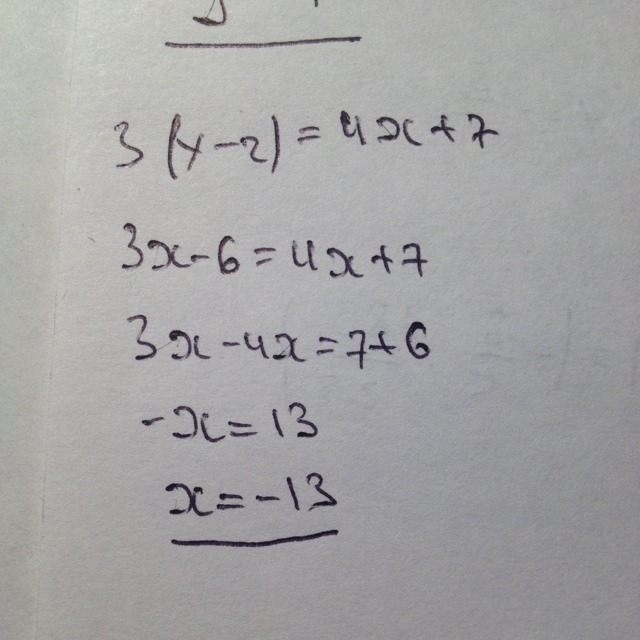 3(x-2)=4x+7
3x-6=4x+7
3x-4x=7+6
-x=13
x=-13